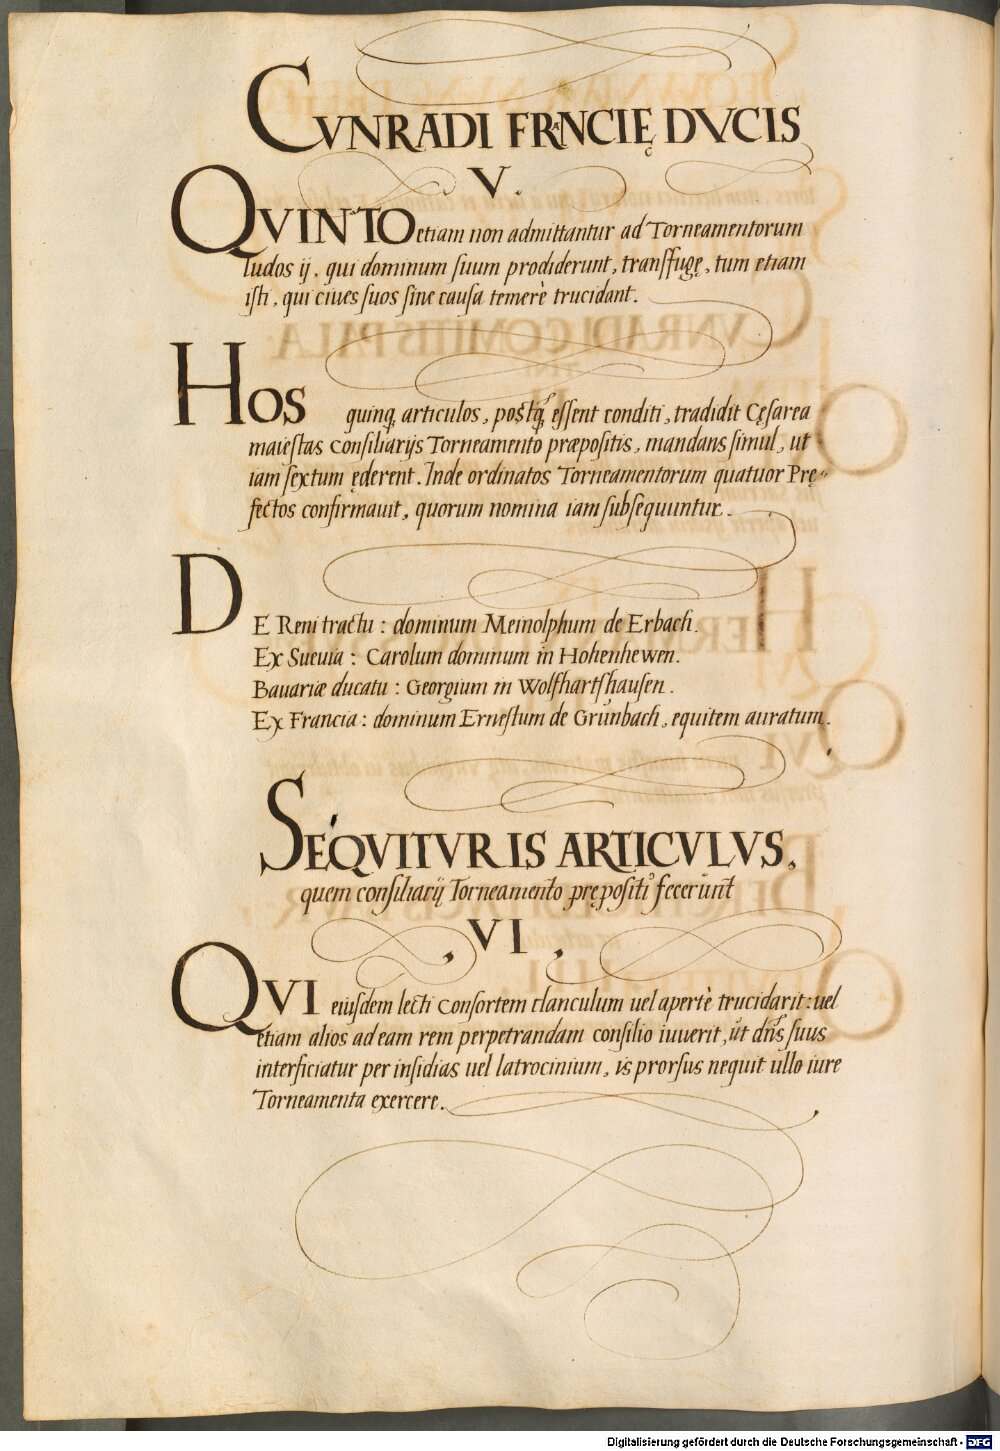 CVNRADI FRANCIĘ DVCIS
V.
QVINTO etiam non admittantur ad Torneamentorum
ludos ij, qui dominum suum prodiderunt, transfugę, tum etiam
isti, qui ciues suos sine causa temerè trucidant.
HOS quinq; articulos, postq̃ essent conditi, tradidit Cęsarea
maiestas Consiliarijs Torneamento præpositis, mandans simul, ut
iam sextum ęderent. Inde ordinatos Torneamentorum quatuor Pre᷒ę=
fectos confirmauit, quorum nomina iam subsequuntur.
DE Reni tractu: dominum Meinolphum de Erbach.
Ex Sueuia: Carolum dominum in Hohenhewen.
Bauariæ ducatu: Georgium in Wolfhartshausen.
Ex Francia: dominum Ernestum de Grŭnbach, equitem auratum.
SEQVITVR IS ARTICVLVS,
quem consiliarij Torneamento prępositi fecerunt
, VI ,
QVI eiusdem lecti Consortem clanculum uel apertè trucidarit: uel
etiam alios ad eam rem perpetrandam consilio iuuerit, ut dñs suus
interficiatur per insidias uel latrocinium, is prorsus nequit ullo iure
Torneamenta exercere.
Digitalisierung gefördert durch die Deutsche Forschungsgemeinschaft - DFG